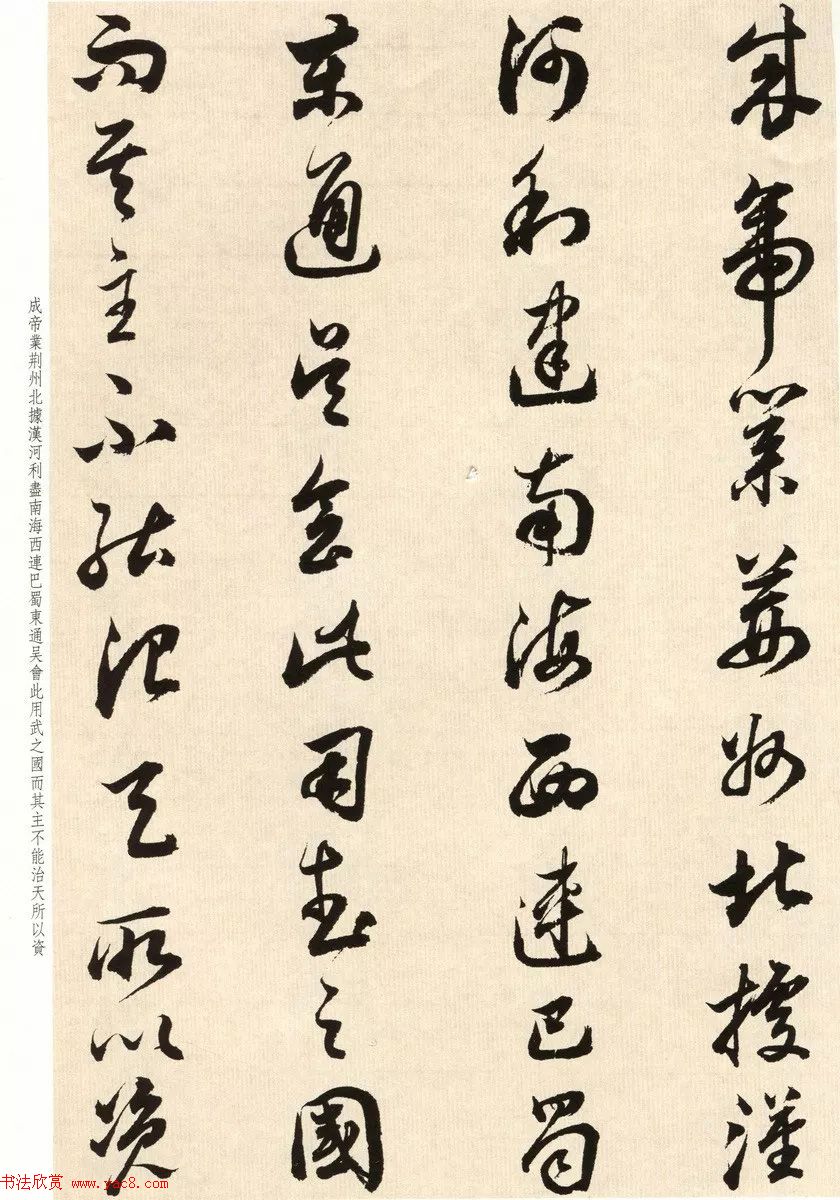 成帝業荊州北據漢
河利盡南海西連巴蜀
東通吳會此用武之國
而其主不能治天所以資
成帝業荆州北據漢河利盡南海西連巴蜀東通吴會此用武之國而其主不能治天所以資
书法欣赏 www.yac8.com